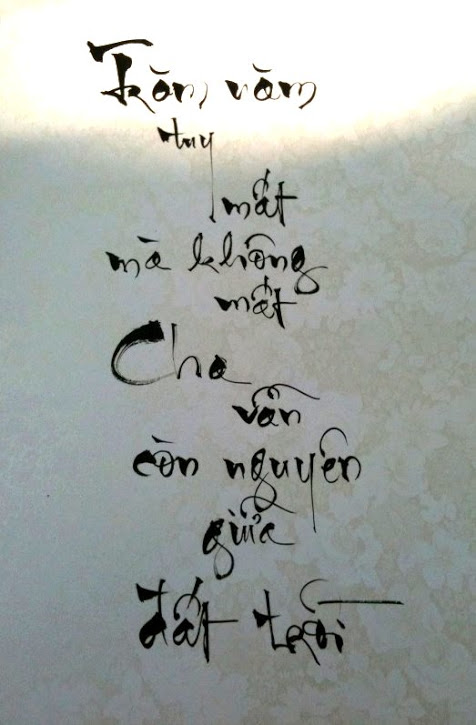 Trăm năm
tuy
mất
mà không
mất
Cha
vẫn
còn nguyên
giữa
đất trời